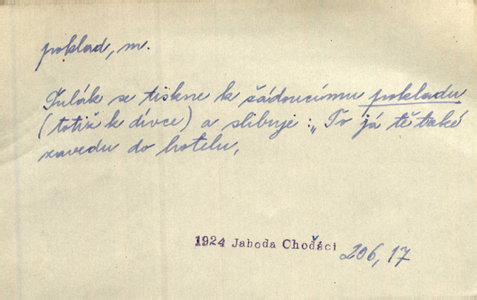 poklad, m.
Tulák se tiskne k žádoucímu pokladu
(totiž k dívce) a slibuje: „To já tě také
zavedu do hotelu,
1924 Jahoda Choďáci 206, 17